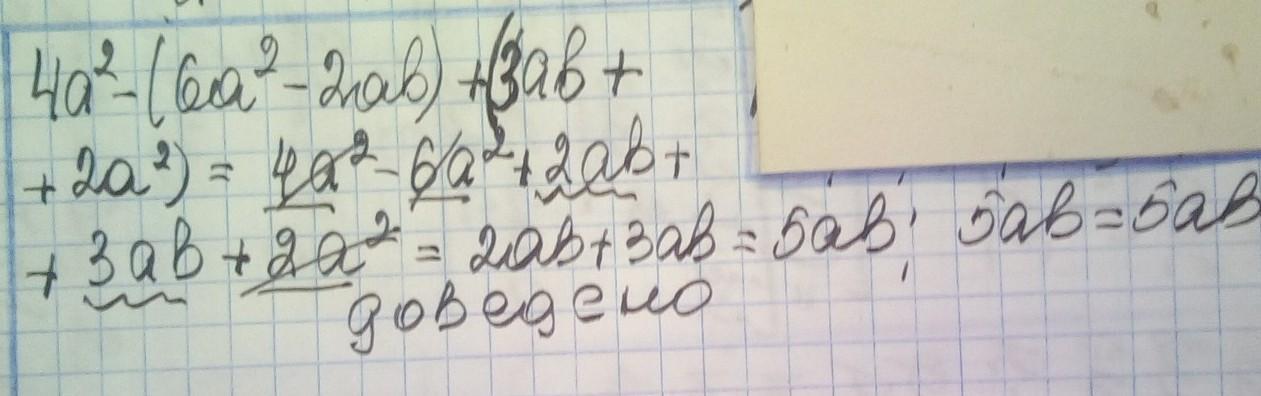 4a² - (6a² - 2ab) + (3ab +
+ 2a²) = 4a² - 6a² + 2ab +
+ 3ab + 2a² = 2ab + 3ab = 5ab; 5ab = 5ab
доведено